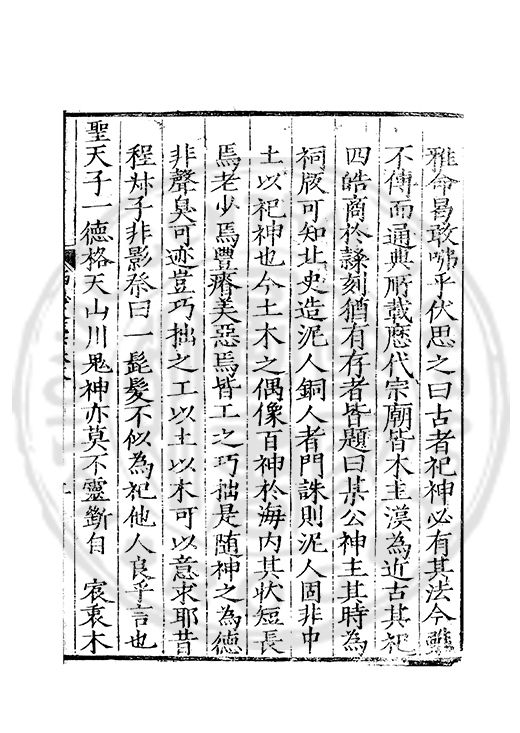 雅命曷敢咈乎伏思之曰古者祀神必有其法今雖
不傳而通典所載歷代宗廟皆木主漢為近古其祀
四皓商於隸刻猶有存者皆題曰某公神主其時為
祠版可知北史造泥人銅人者門誅則泥人固非中
土以祀神也今土木之偶像百神於海内其狀短長
焉老少焉豐瘠美惡焉皆工之巧拙是随神之為德
非聲臭可迹豈巧拙之工以土以木可以意求耶昔
程叔子非影祭曰一髭髮不似為祀他人良乎言也
聖天子一德格天山川鬼神亦莫不靈斷自 宸衷木